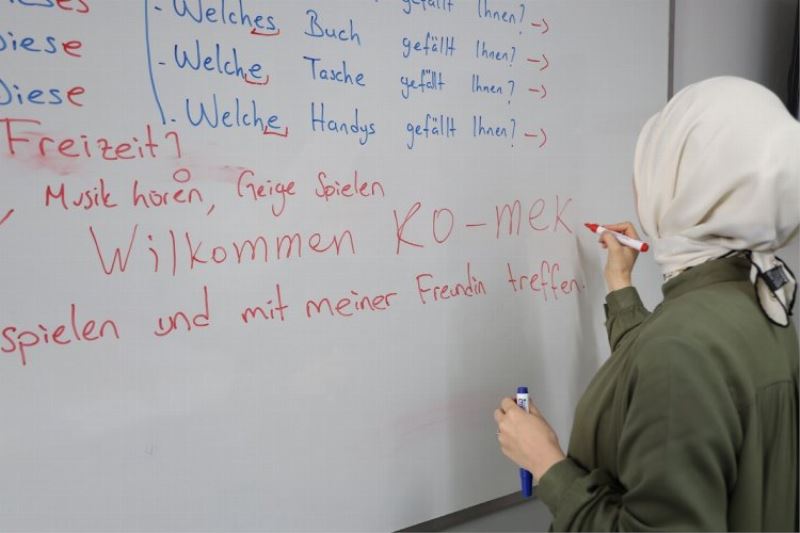 gefällt Ihnen? →
Diese - Welches Buch gefällt Ihnen? →
Diese - Welche Tasche gefällt Ihnen? →
- Welche Handys gefällt Ihnen? →
Freizeit?
Musik hören, Geige Spielen
Wilkommen KO-mek
spielen und mit meiner Freundin treffen.